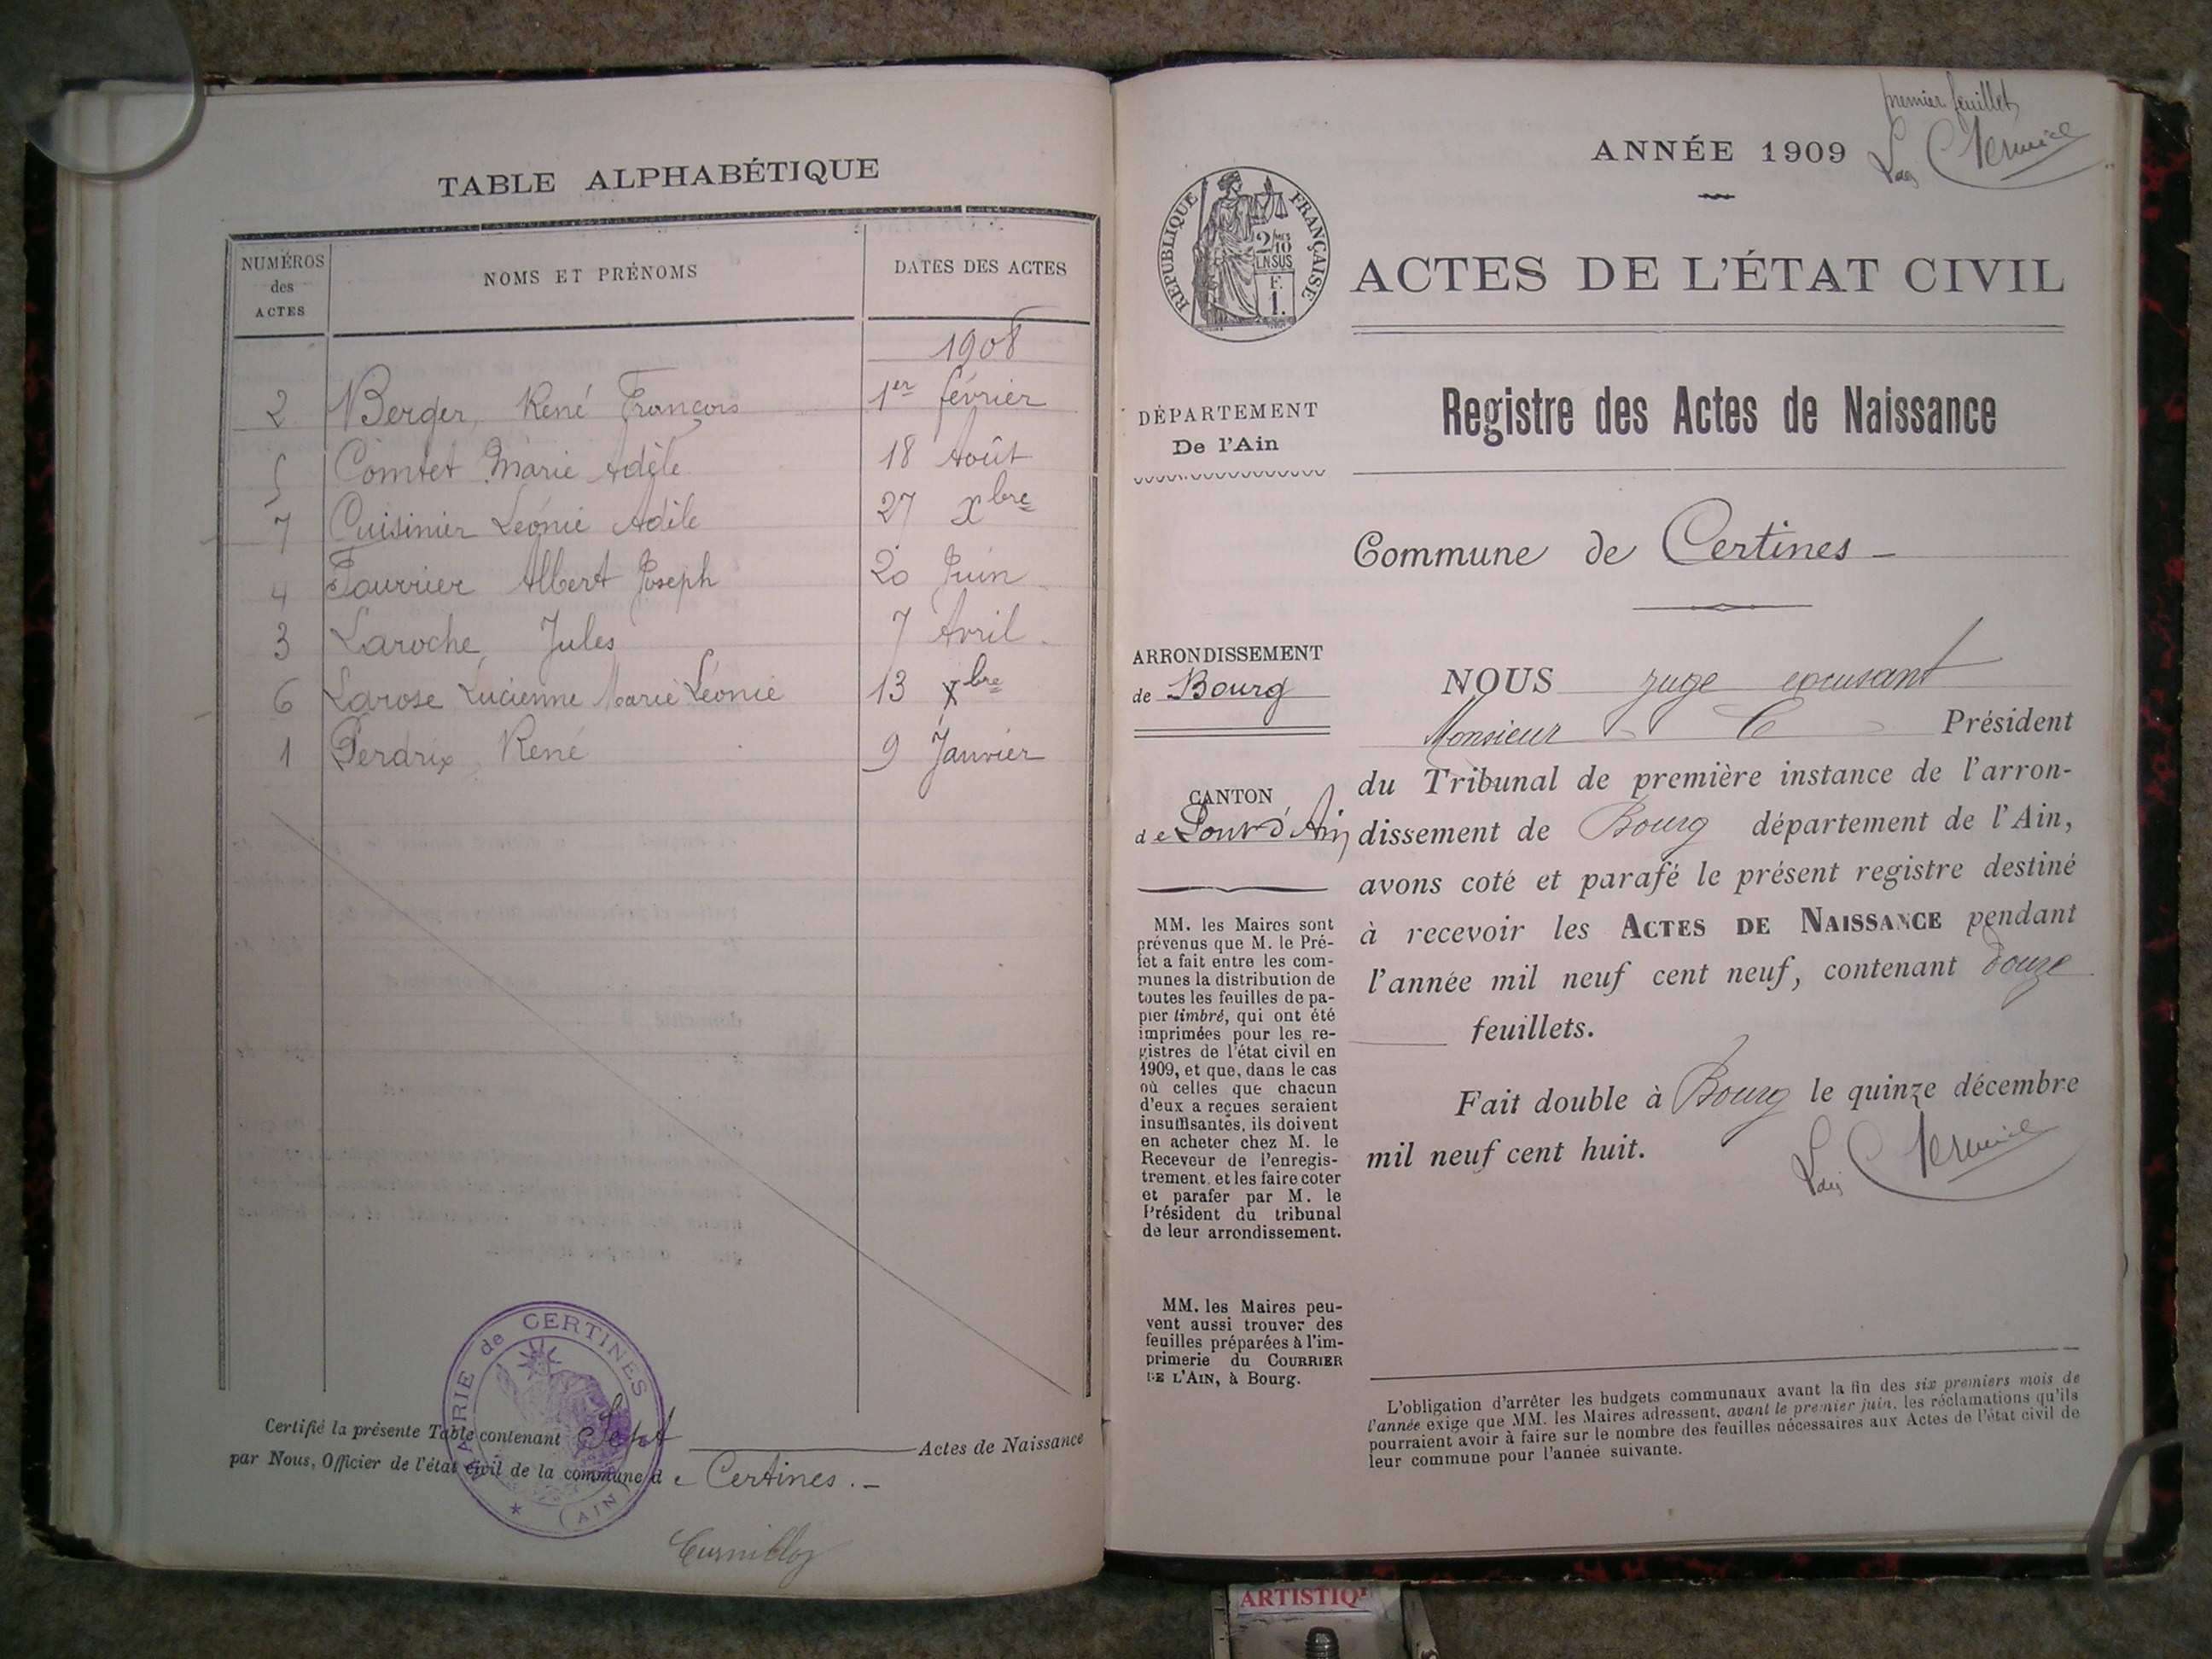 TABLE ALPHABÉTIQUE
NUMÉROS des ACTES
NOMS ET PRÉNOMS
DATES DES ACTES
1908
2 Berger, René François 1er février
5 Comtet Marie Adèle 18 Août
7 Cuisinier Léonie Adèle 27 xbre
4 Albert Joseph 20 Juin
3 Laroche, Jules 7 Avril
6 Larose Lucienne Marie Léonie 13 Xbre
1 Perdrix René 9 Janvier
MAIRIE de CERTINES
(AIN)
Certifié la présente Table contenant Sept Actes de Naissance
par Nous, Officier de l'état civil de la commune de Certines. -
premier feuillet
ANNÉE 1909
RÉPUBLIQUE FRANÇAISE
2/MES
10
EN SUS
F.
1.
ACTES DE L'ÉTAT CIVIL
DÉPARTEMENT
De l'Ain
Registre des Actes de Naissance
Commune de Certines -
ARRONDISSEMENT
de Bourg
CANTON
de Pont d'Ain
MM. les Maires sont
prévenus que M. le Pré-
fet a fait entre les com-
munes la distribution de
toutes les feuilles de pa-
pier timbré, qui ont été
imprimées pour les re-
gistres de l'état civil en
1909, et que, dans le cas
où celles que chacun
d'eux a reçues seraient
insuffisantes, ils doivent
en acheter chez M. le
Receveur de l'enregis-
trement, et les faire coter
et parafer par M. le
Président du tribunal
de leur arrondissement.
MM. les Maires peu-
vent aussi trouver des
feuilles préparées à l'im-
primerie du COURRIER
DE L'AIN, à Bourg.
NOUS juge excusant
Monsieur Président
du Tribunal de première instance de l'arron-
dissement de Bourg département de l'Ain,
avons coté et parafé le présent registre destiné
à recevoir les ACTES DE NAISSANCE pendant
l'année mil neuf cent neuf, contenant douze
feuillets.
Fait double à Bourg le quinze décembre
mil neuf cent huit.
L'obligation d'arrêter les budgets communaux avant la fin des six premiers mois de
l'année exige que MM. les Maires adressent, avant le premier juin, les réclamations qu'ils
pourraient avoir à faire sur le nombre des feuilles nécessaires aux Actes de l'état civil de
leur commune pour l'année suivante.
ARTISTIQ